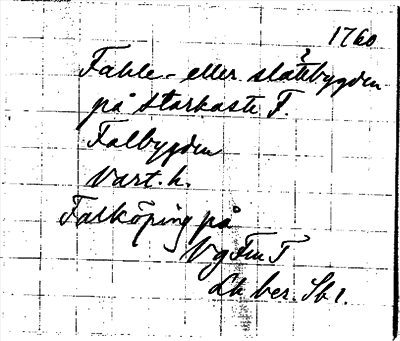 1760
Fahle- eller slättbygden
på starkaste F.
Falbygden
Vart. h.
Falköping på
Vg Fm T
Lh ber. Sb 1.